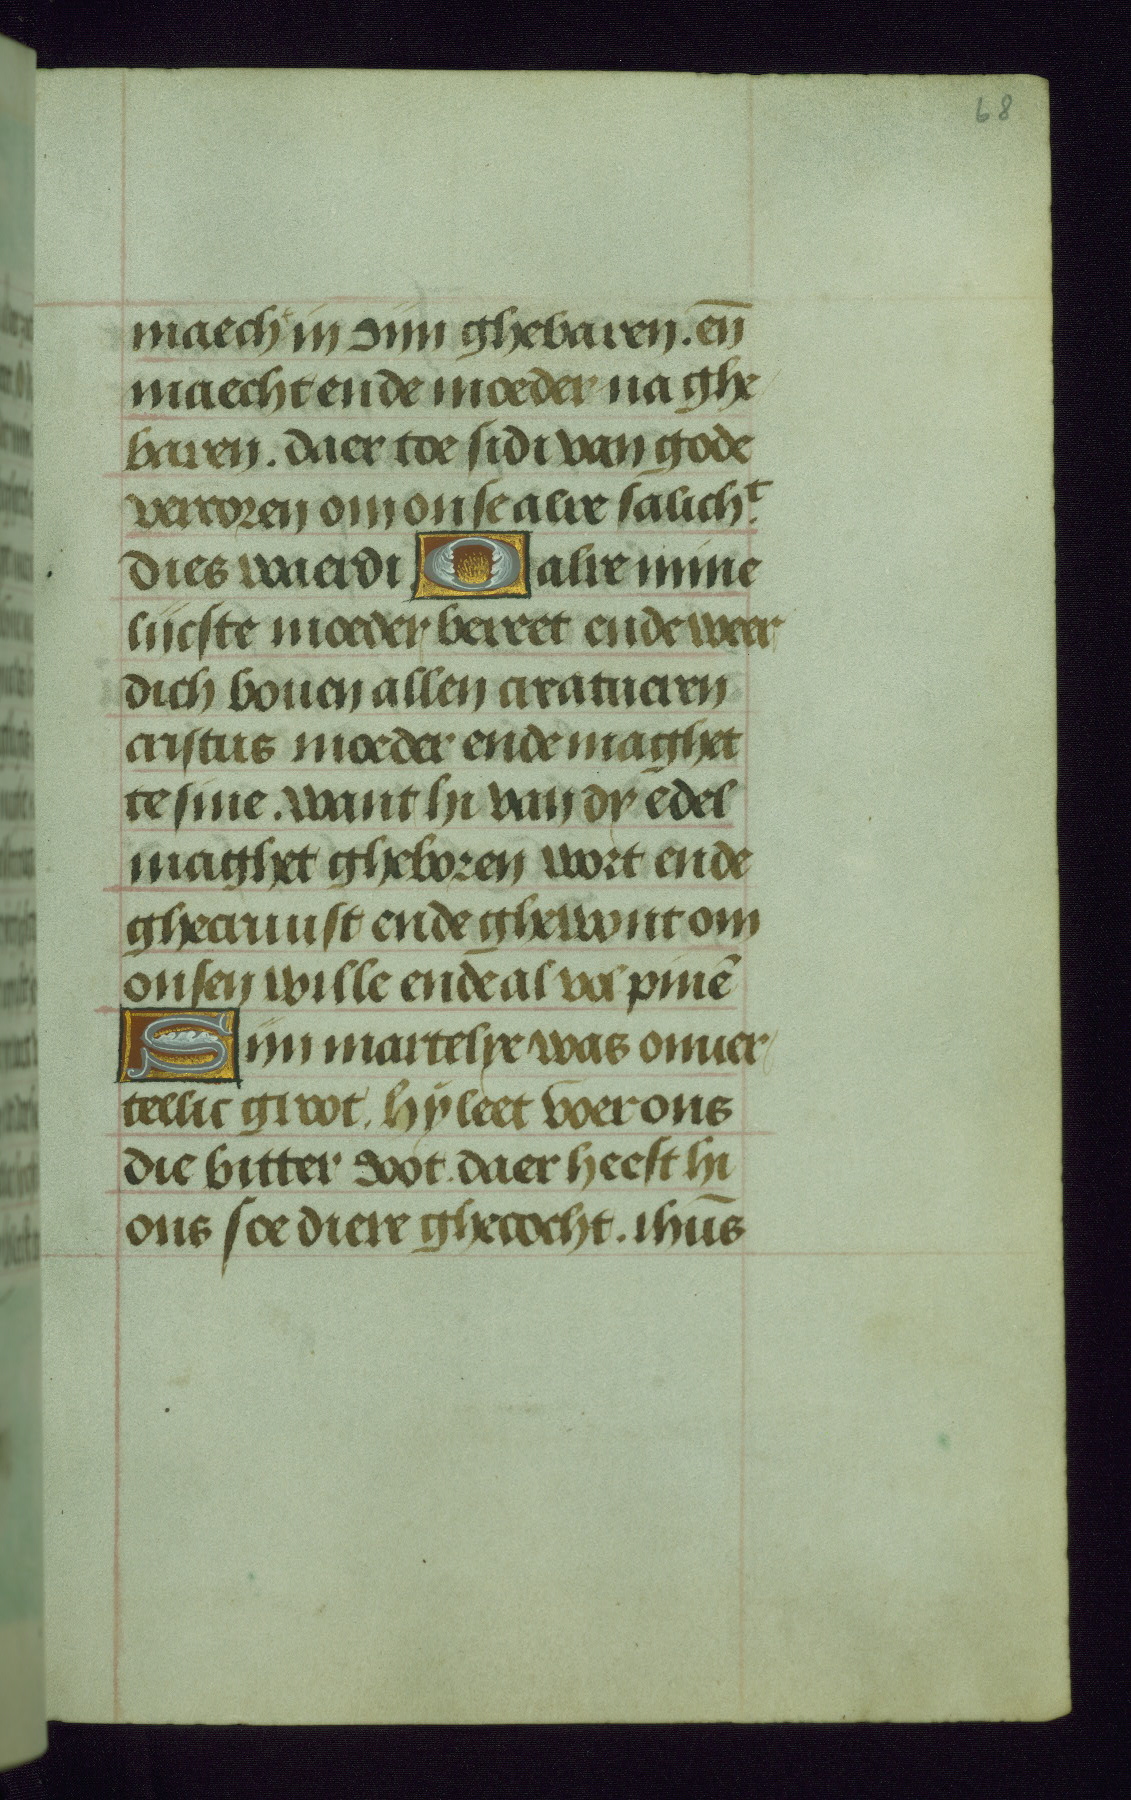 68
maechᵗ in dijn ghebaren. eñ
maecht ende moeder na ghe
baren. daer toe sidi van gode
vercoren om onse alre salichᵗ.
Dies waerdi O alre mine
lijcste moeder bereet ende weer
dich bouen allen creatueren
cristus moeder ende maghet
te sine. want hi van dy edel
maghet gheboren wort ende
ghecruust ende ghewont om
onsen wille ende al vol pinē
Sijn martelye was onuer
tellic groot. hÿ leet voer ons
die bitter doot. daer heeft hi
ons soe diere ghecocht. ihūs